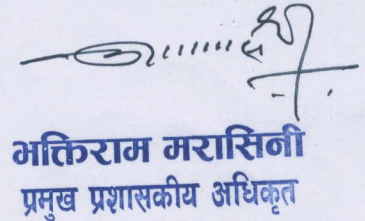 भक्तिराम मरासिनी
प्रमुख प्रशासकीय अधिकृत